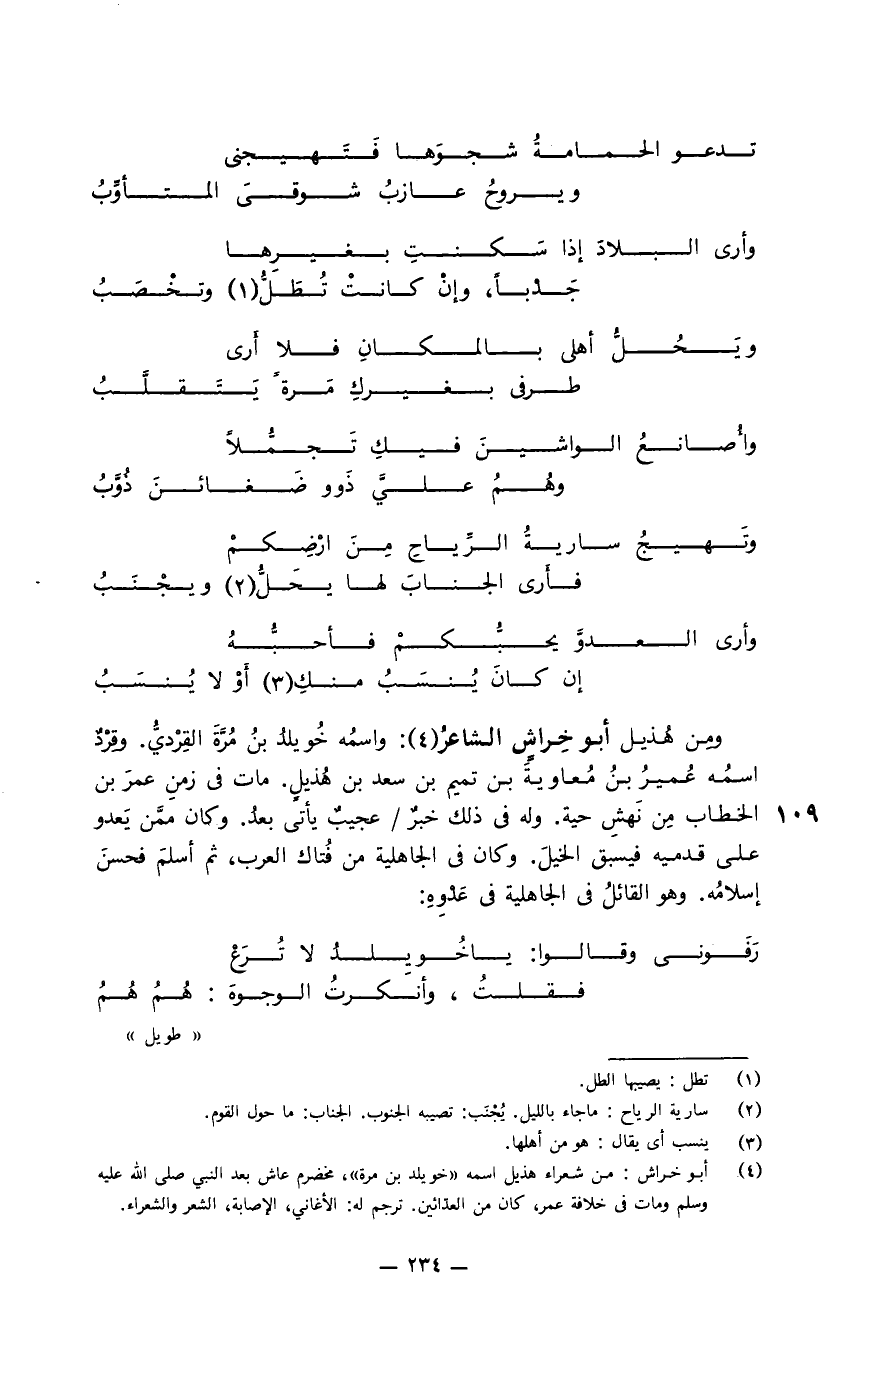 تدعو الحمامةُ شجوَها فَتَهيجنى
ويروحُ عازبُ شوقىَ المتأوِّبُ
وأرى البلادَ إذا سَكنتِ بغيرِها
جَدْباً، وإنْ كانتْ تُطَلُّ(١) وتخْصَبُ
ويَحُلُّ أهلى بالمكانِ فلا أَرى
طرفى بغيركِ مَرة ً يَتَقلَّبُ
وأُصانعُ الواشينَ فيكِ تَجمُّلاً
وهُمُ علىَّ ذوو ضَغائنَ ذُوَّبُ
وتَهيجُ ساريةُ الرِّياحِ مِنَ ارْضِكمْ
فأَرى الجنابَ لها يحَلُّ(٢) ويجْنَبُ
وأرى العدوَّ يحبُّكمْ فأحبُّهُ
إن كانَ يُنسَبُ منكِ(٣) أَوْ لا يُنسَبُ
ومِن هُذيل أبو خِراشٍ الشاعرُ(٤): واسمُه خُويلدُ بنُ مُرَّةَ القِرْدىُّ. وقِرْدٌ
اسمُه عُميرُ بنُ مُعاويةَ بن تميم بن سعد بن هُذيلٍ. مات فى زمنِ عمرَ بن
١٠٩ الخطاب مِن نَهشِ حية. وله فى ذلك خبرٌ / عجيبٌ يأتى بعدُ. وكان ممَّن يَعدو
على قدميه فيسبق الخيلَ. وكان فى الجاهلية من فُتاك العرب، ثم أسلمَ فحسنَ
إسلامُه. وهو القائلُ فى الجاهلية فى عَدْوِهِ:
رَفَونى وقالوا: ياخُويلدُ لا تُرَعْ
فقلتُ ، وأنكرتُ الوجوهَ : هُمُ هُمُ
« طويل »
(١) تطل : يصيبها الطل.
(٢) سارية الرياح : ماجاء بالليل. يُجْنَب: تصيبه الجنوب. الجناب: ما حول القوم.
(٣) ينسب أى يقال : هو من أهلها.
(٤) أبو خراش : من شعراء هذيل اسمه «خويلد بن مرة»، مخضرم عاش بعد النبي صلى الله عليه
وسلم ومات فى خلافة عمر، كان من العدّائين. ترجم له: الأغاني، الإصابة، الشعر والشعراء.
— ٢٣٤ —